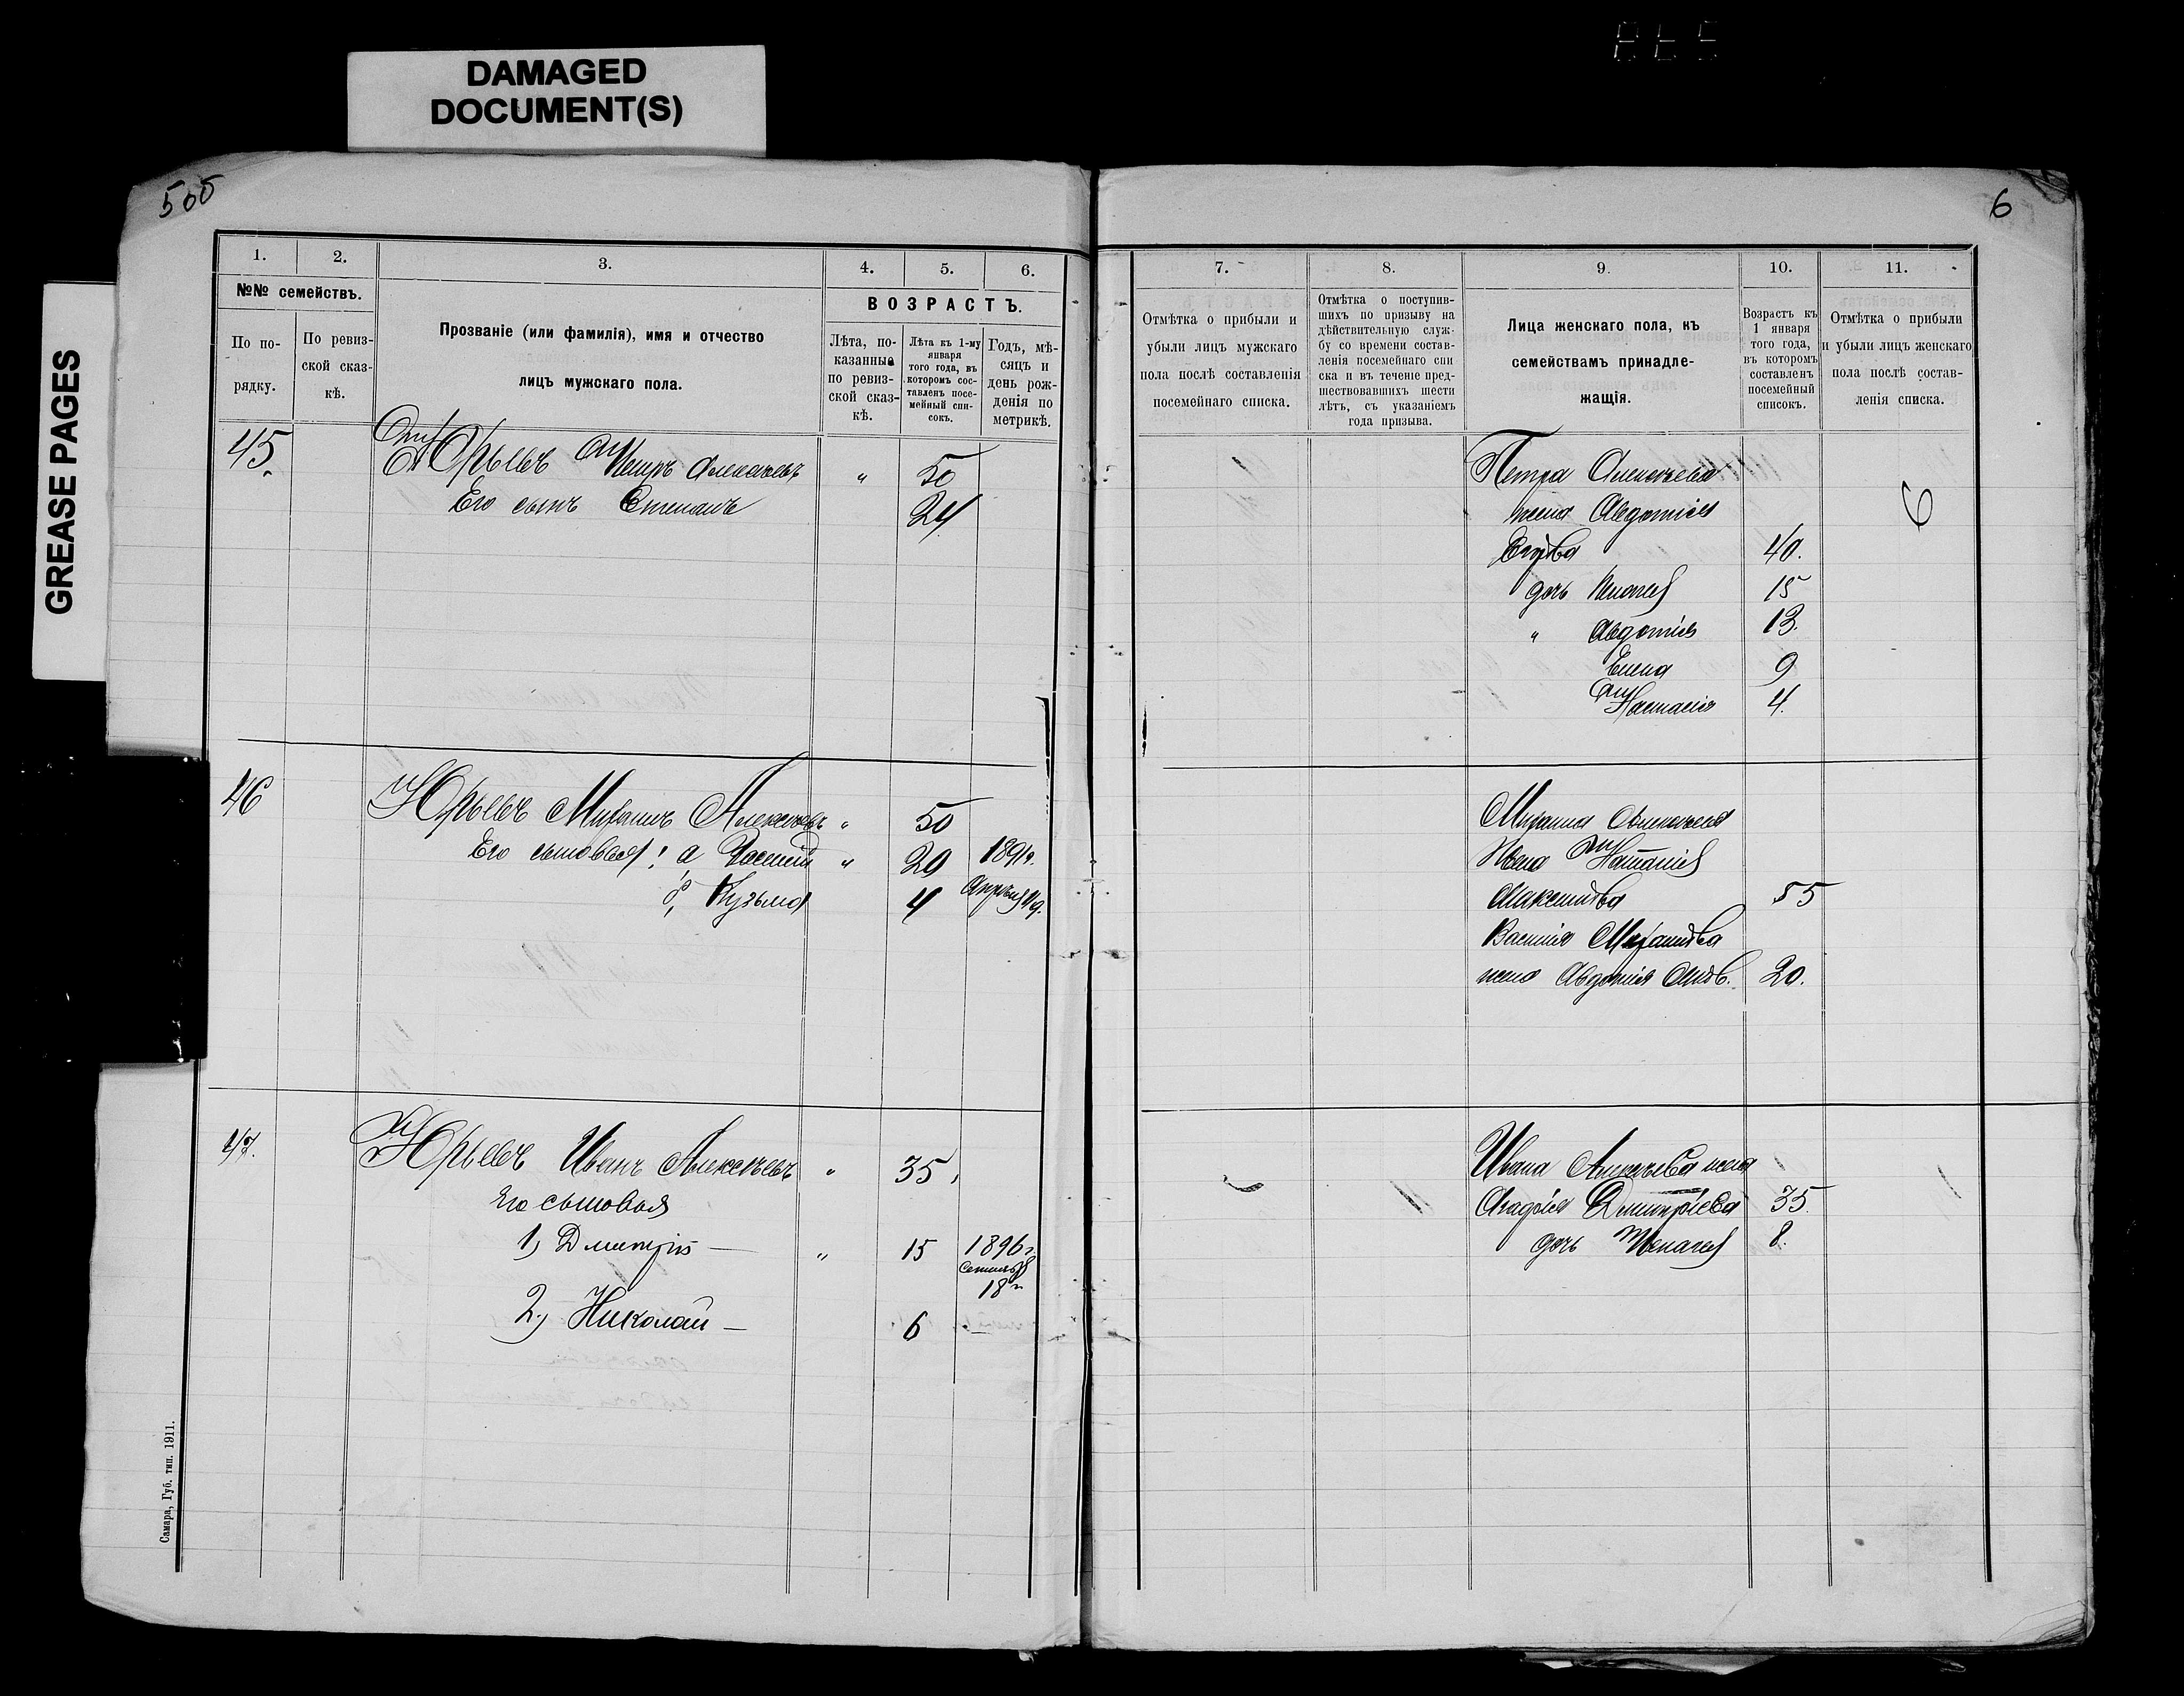 DAMAGED
DOCUMENT(S)
GREASE PAGES
505
1.
2.
3.
4.
5.
6.
№№ семействъ.
По по-
рядку.
По ревиз-
ской сказ-
кѣ.
Прозваніе (или фамилія), имя и отчество
лицъ мужскаго пола.
ВОЗРАСТЪ.
Лѣта, по-
казанные
по ревиз-
ской сказ-
кѣ.
Лѣта къ 1-му
января
того года, въ
которомъ сос-
тавленъ посе-
мейный спи-
сокъ.
Годъ, мѣ-
сяцъ и
день рож-
денія по
метрикѣ.
45. Юрьевъ Петръ Алексѣевъ " 50
Его сынъ Степанъ 24
46 Юрьевъ Миронъ Алексѣевъ " 50
Его сыновья: а, Василій " 20 1891г.
б, Кузьма 4 Апрѣля
47. Юрьевъ Иванъ Алексѣевъ " 35
Его сыновья
1, Дмитрій — " 15 1896г.
Сентября
18
2, Николай — 6
Самара, Губ. тип. 1911.
6
7.
8.
9.
10.
11.
Отмѣтка о прибыли и
убыли лицъ мужскаго
пола послѣ составленія
посемейнаго списка.
Отмѣтка о поступив-
шихъ по призыву на
дѣйствительную служ-
бу со времени состав-
ленія посемейнаго спи
ска и въ теченіе пред-
шествовавшихъ шести
лѣтъ, съ указаніемъ
года призыва.
Лица женскаго пола, къ
семействамъ принадле-
жащія.
Возрастъ къ
1 января
того года,
въ которомъ
составленъ
посемейный
списокъ.
Отмѣтка о прибыли
и убыли лицъ женскаго
пола послѣ состав-
ленія списка.
Петра Алексѣева
жена Авдотія 6
40.
дочь 15
" Авдотія 13.
Елена 9
Настасія 4.
Мирона Алексѣева
Жена Наталія
55
Василія Миронова
жена Авдотія 20.
Ивана Алексѣева жена
Дмитріева 35.
дочь 8.